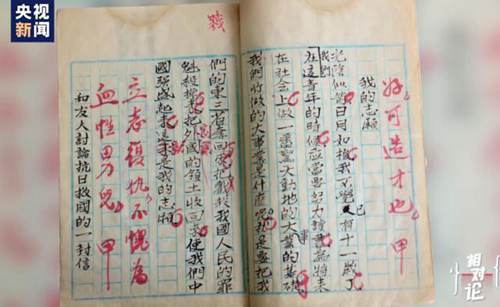 央视新闻
好可造才也 甲
我的志願
光陰似箭日月如梭我不覺已有十一歲了
我們在這青年的時候應當要努力讀書為將來
在社会上做一番驚天動地的大業的基礎
我們做的大事業是什麼呢就是要把我
們的東三省奪回要把殺我國人民的罪
魁 把外國的領土收回 使我們中
國強盛起來這 是我的志願
立志復仇不愧為
血性男兒 甲
和友人討論抗日救國的一封信
相对论